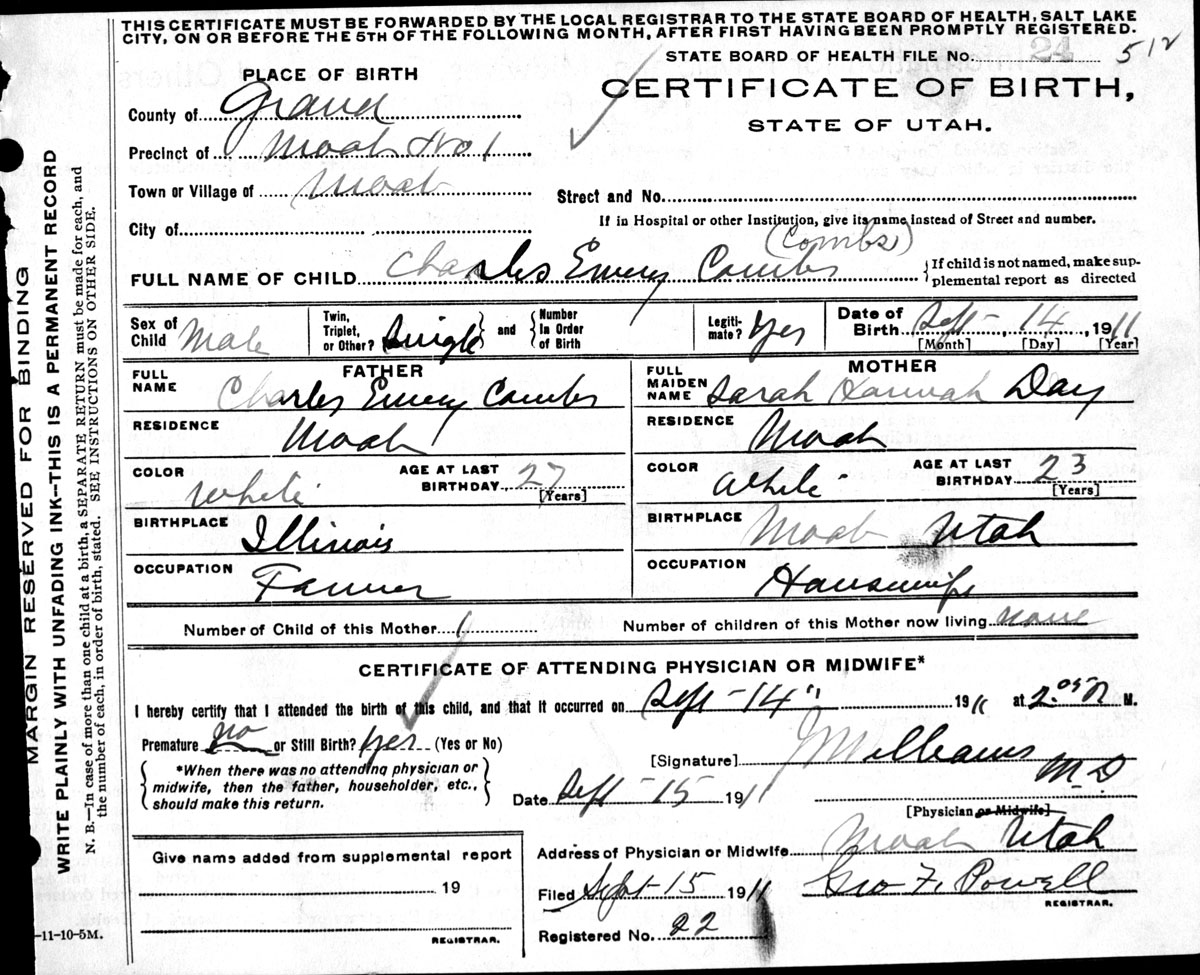 THIS CERTIFICATE MUST BE FORWARDED BY THE LOCAL REGISTRAR TO THE STATE BOARD OF HEALTH, SALT LAKE
CITY, ON OR BEFORE THE 5TH OF THE FOLLOWING MONTH, AFTER FIRST HAVING BEEN PROMPTLY REGISTERED.
STATE BOARD OF HEALTH FILE No. 24 512
PLACE OF BIRTH
CERTIFICATE OF BIRTH,
STATE OF UTAH.
County of Grand
Precinct of Moab No 1
Town or Village of Moab
Street and No.
If in Hospital or other Institution, give its name instead of Street and number.
City of
(Combs)
FULL NAME OF CHILD Charles Emery Combs {If child is not named, make sup-
plemental report as directed
Sex of Child Male
Twin, Triplet, or Other? Single } and { Number In Order of Birth
Legiti-mate? Yes
Date of Birth Sept- 14, 1911
[Month] [Day] [Year]
FATHER
FULL NAME Charles Emery Combs
RESIDENCE Moab
COLOR White
AGE AT LAST BIRTHDAY 27
[Years]
BIRTHPLACE Illinois
OCCUPATION Farmer
MOTHER
FULL MAIDEN NAME Sarah Hannah Day
RESIDENCE Moab
COLOR White
AGE AT LAST BIRTHDAY 23
[Years]
BIRTHPLACE Moab Utah
OCCUPATION Housewife
Number of Child of this Mother 1 Number of children of this Mother now living none
CERTIFICATE OF ATTENDING PHYSICIAN OR MIDWIFE*
I hereby certify that I attended the birth of this child, and that it occurred on Sept-14" 1911 at 2.05 M.
Premature no or Still Birth? yes (Yes or No)
*When there was no attending physician or
midwife, then the father, householder, etc.,
should make this return.
[Signature] J Williams
M D
Date Sept-15 1911
[Physician or Midwife]
Address of Physician or Midwife Moab Utah
Filed Sept-15 1911 Geo F. Powell
REGISTRAR.
Registered No. 22
Give name added from supplemental report
19
REGISTRAR.
-11-10-5M.
MARGIN RESERVED FOR BINDING
WRITE PLAINLY WITH UNFADING INK—THIS IS A PERMANENT RECORD
N. B.—In case of more than one child at a birth, a SEPARATE RETURN must be made for each, and
the number of each, in order of birth, stated. SEE INSTRUCTIONS ON OTHER SIDE.